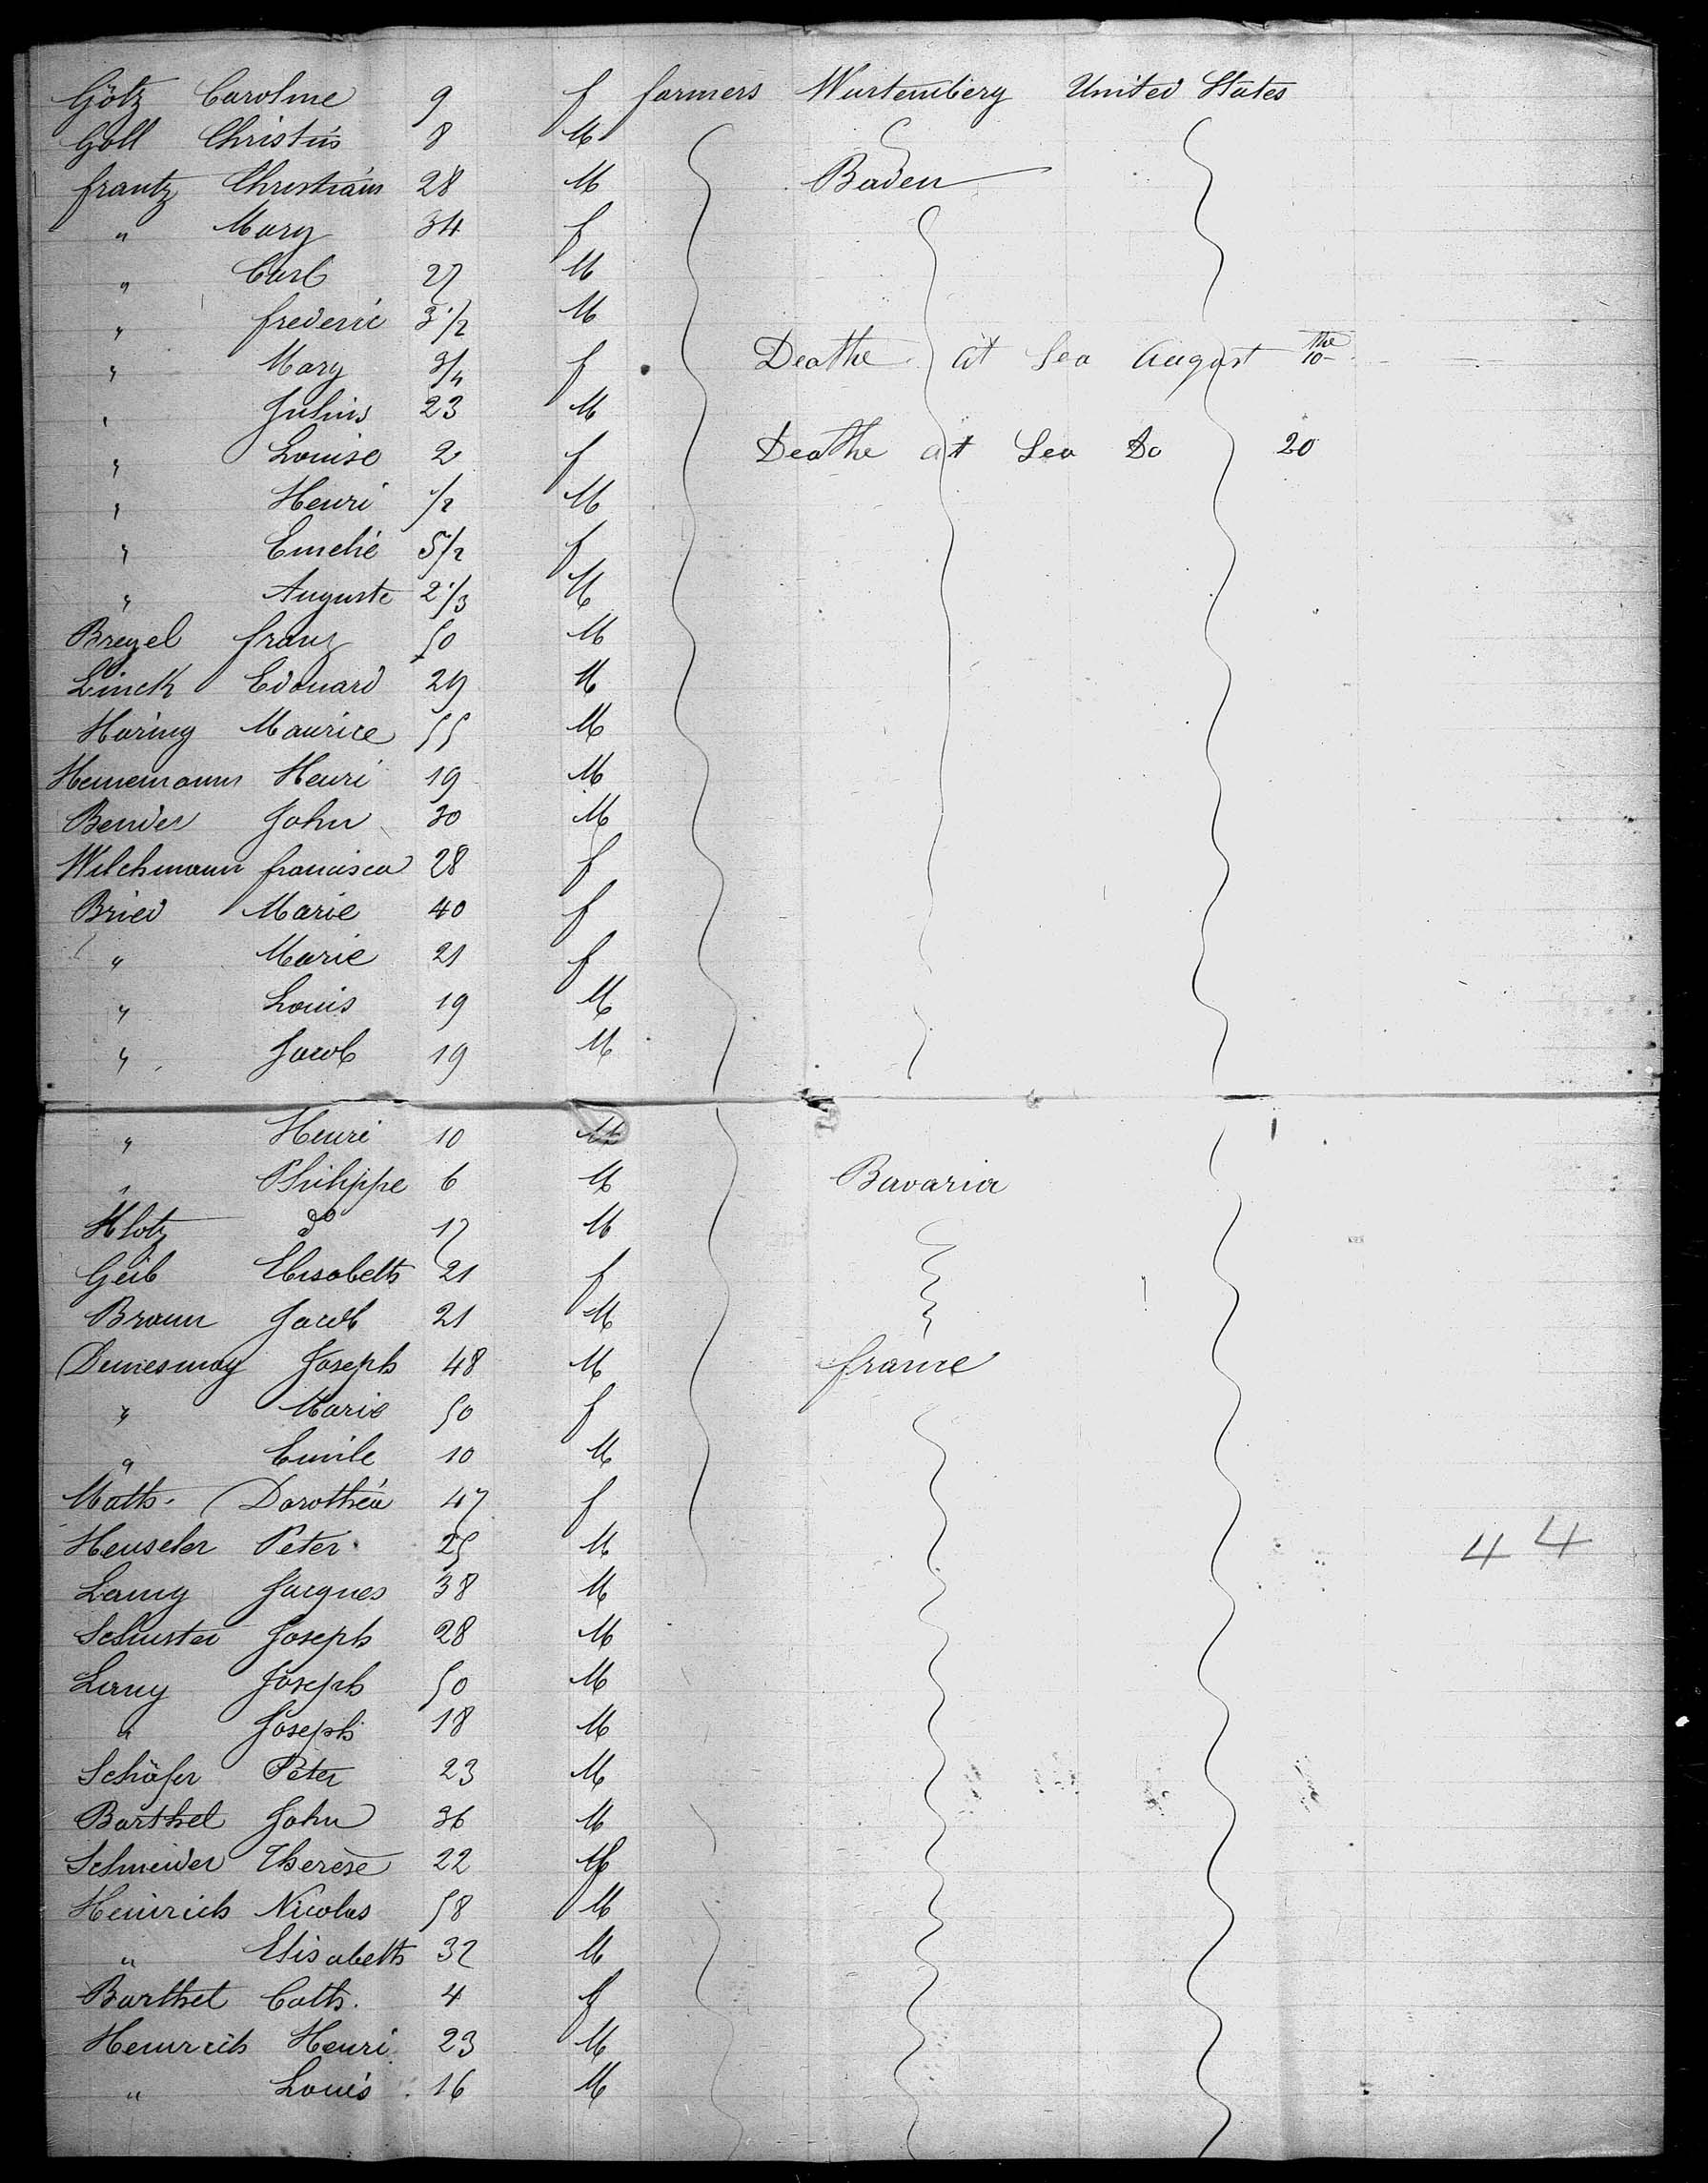 Götz Caroline 9 f farmers Wurtemberg United States
Goll Christ's 8 M
frantz Christians 28 M Baden
" Mary 34 f
" Carl 27 M
" frederic 3 1/2 M
" Mary 3/4 f Deathe at Sea August 10 the
" Julius 23 M
" Louise 2 f Deathe at Sea Do 20
" Henri 1/2 M
" Emelie 5/2 f
" Auguste 2 1/3 M
Bregel franz 50 M
Linck Edouard 29 M
Haring Maurice 55 M
Heinemann Henri 19 M
Bender John 30 M
Wilchmann francisca 28 f
Bried Marie 40 f
" Marie 21 f
" Louis 19 M
" Jacob 19 M
" Henri 10 M
" Philippe 6 M Bavaria
Klotz do 17 M
Geib Elisabeth 21 f
Braun Jacob 21 M
Demesmay Joseph 48 M france
" Marie 50 f
" Emile 10 M
Math. Dorothéa 47 f
Heuseler Peter 25 M 4 4
Lamy Jacques 38 M
Schuster Joseph 28 M
Lamy Joseph 50 M
" Joseph 18 M
Schäfer Peter 23 M
Barthel John 36 M
Schneider Therese 22
Heinrich Nicolas 58 M
" Elisabeth 32 M
Barthel Cath. 4 f
Heinrich Henri 23 M
" Louis 16 M